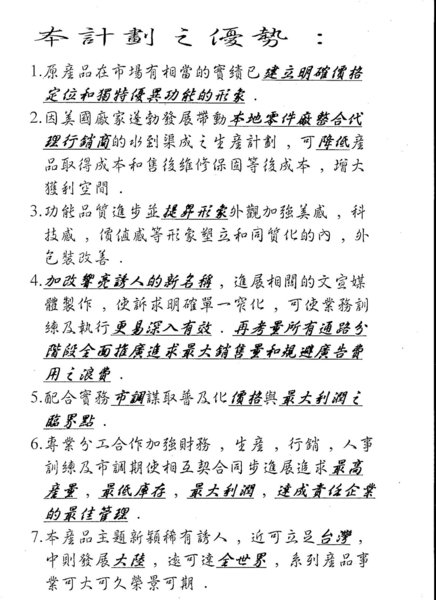 本計劃之優勢：
1.原產品在市場有相當的實績已建立明確價格
定位和獨特優異功能的形象．
2.因美國廠家蓬勃發展帶動本地零件廠整合代
理行銷商的水到渠成之生產計劃，可降低產
品取得成本和售後維修保固等後成本，增大
獲利空間．
3.功能品質進步並提昇形象外觀加強美感，科
技感，價值感等形象塑立和同質化的內，外
包裝改善．
4.加改響亮誘人的新名稱，進展相關的文宣媒
體製作，使訴求明確單一窄化，可使業務訓
練及執行更易深入有效．再考量所有通路分
階段全面推廣進求最大銷售量和規避廣告費
用之浪費．
5.配合實務市調謀取普及化價格與最大利潤之
臨界點．
6.專業分工合作加強財務，生產，行銷，人事
訓練及市調期使相互契合同步進展進求最高
產量，最低庫存，最大利潤，達成責任企業
的最佳管理．
7.本產品主題新穎稀有誘人，近可立足台灣，
中則發展大陸，遠可達全世界，系列產品事
業可大可久榮景可期．